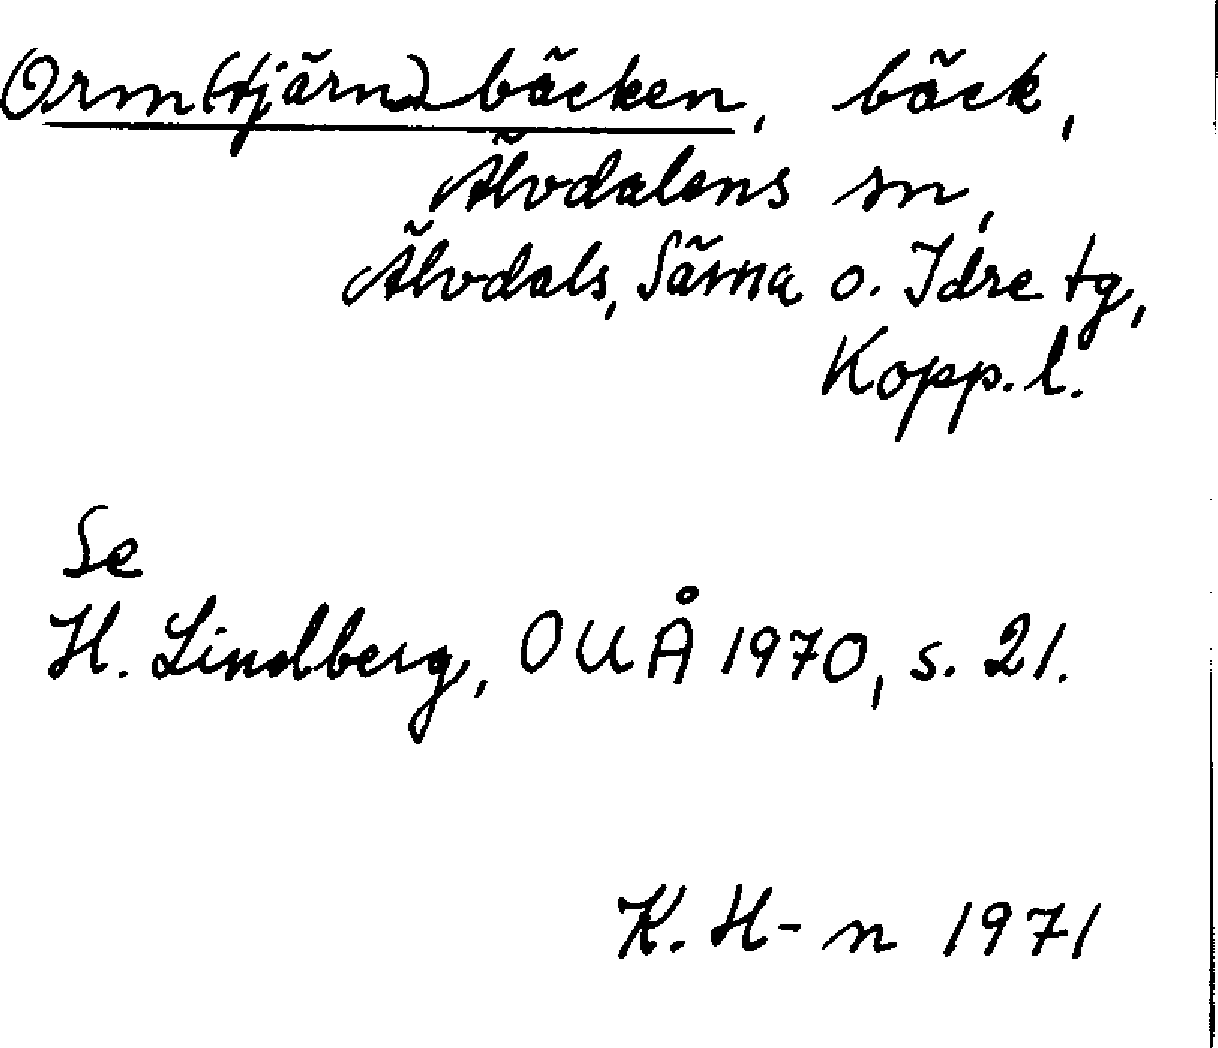 Orm(tjärn)bäcken, bäck,
Älvdalens sn,
Älvdals, Särna o. Idre tg,
Kopp. l.
Se
H. Lindberg, OUÅ 1970, s. 21.
K. H-n 1971